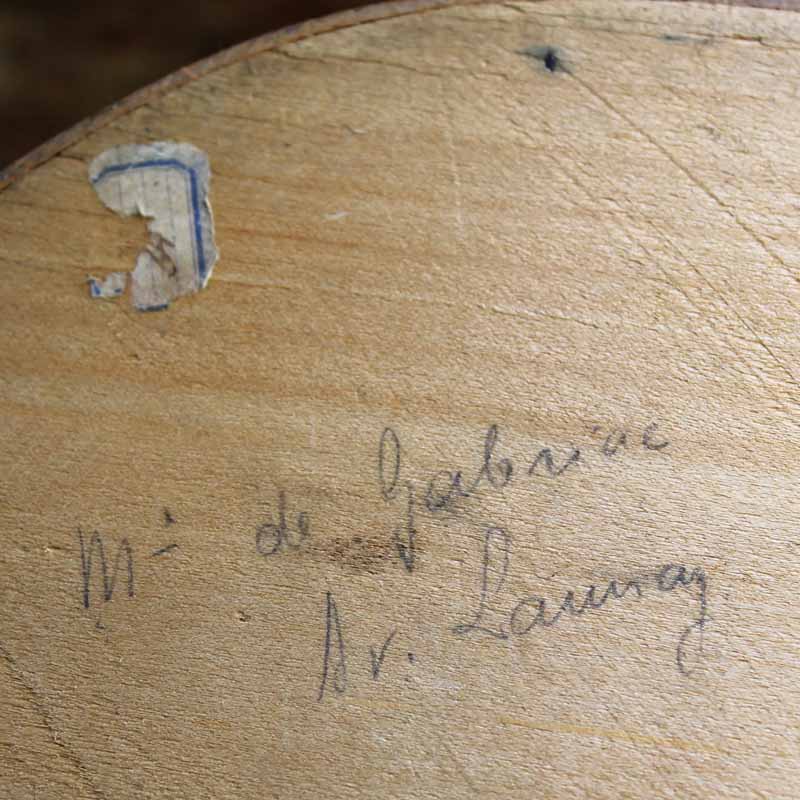 Mis de Gabriac
Av. Launay